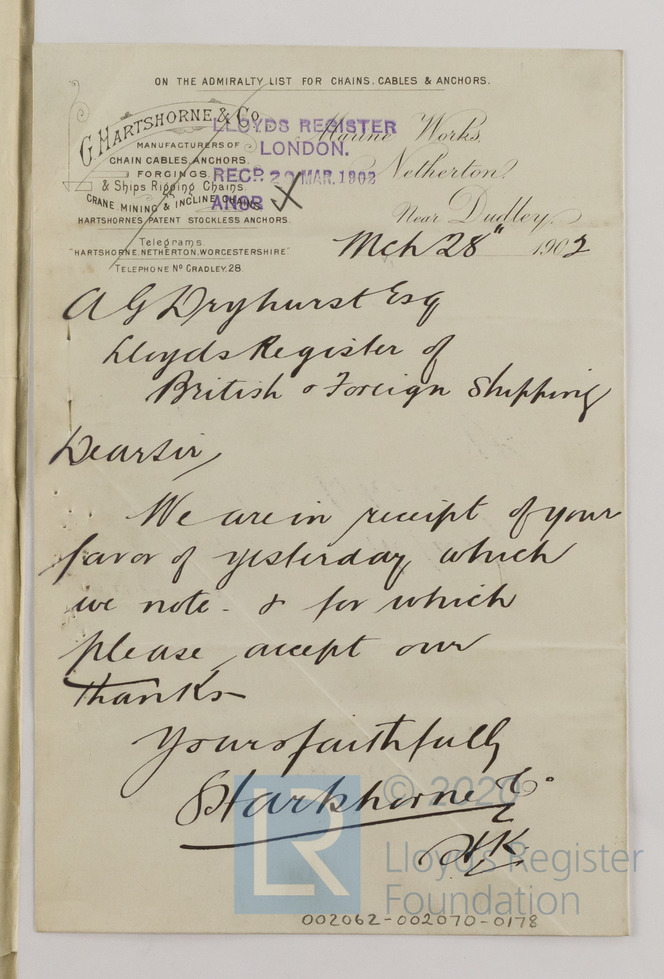 ON THE ADMIRALTY LIST FOR CHAINS, CABLES & ANCHORS.
G. HARTSHORNE & Co.
MANUFACTURERS OF
CHAIN CABLES, ANCHORS,
FORGINGS,
& Ships Rigging Chains.
CRANE MINING & INCLINE CHAINS
HARTSHORNES PATENT STOCKLESS ANCHORS.
Telegrams
"HARTSHORNE, NETHERTON, WORCESTERSHIRE."
TELEPHONE No CRADLEY. 28.
Marine Works,
Netherton,
Near Dudley
LLOYDS REGISTER
LONDON.
RECD. 29 MAR. 1902
ANSR
Mch 28" 1902
A G Dryhurst Esq
Lloyds Register of
British & Foreign Shipping
Dear Sir,
We are in receipt of your
favor of yesterday which
we note - & for which
please accept our
thanks
Yours faithfully
GHartshorne & Co.
HK
© 2020
LR
Lloyd's Register
Foundation
002062-002070-0178